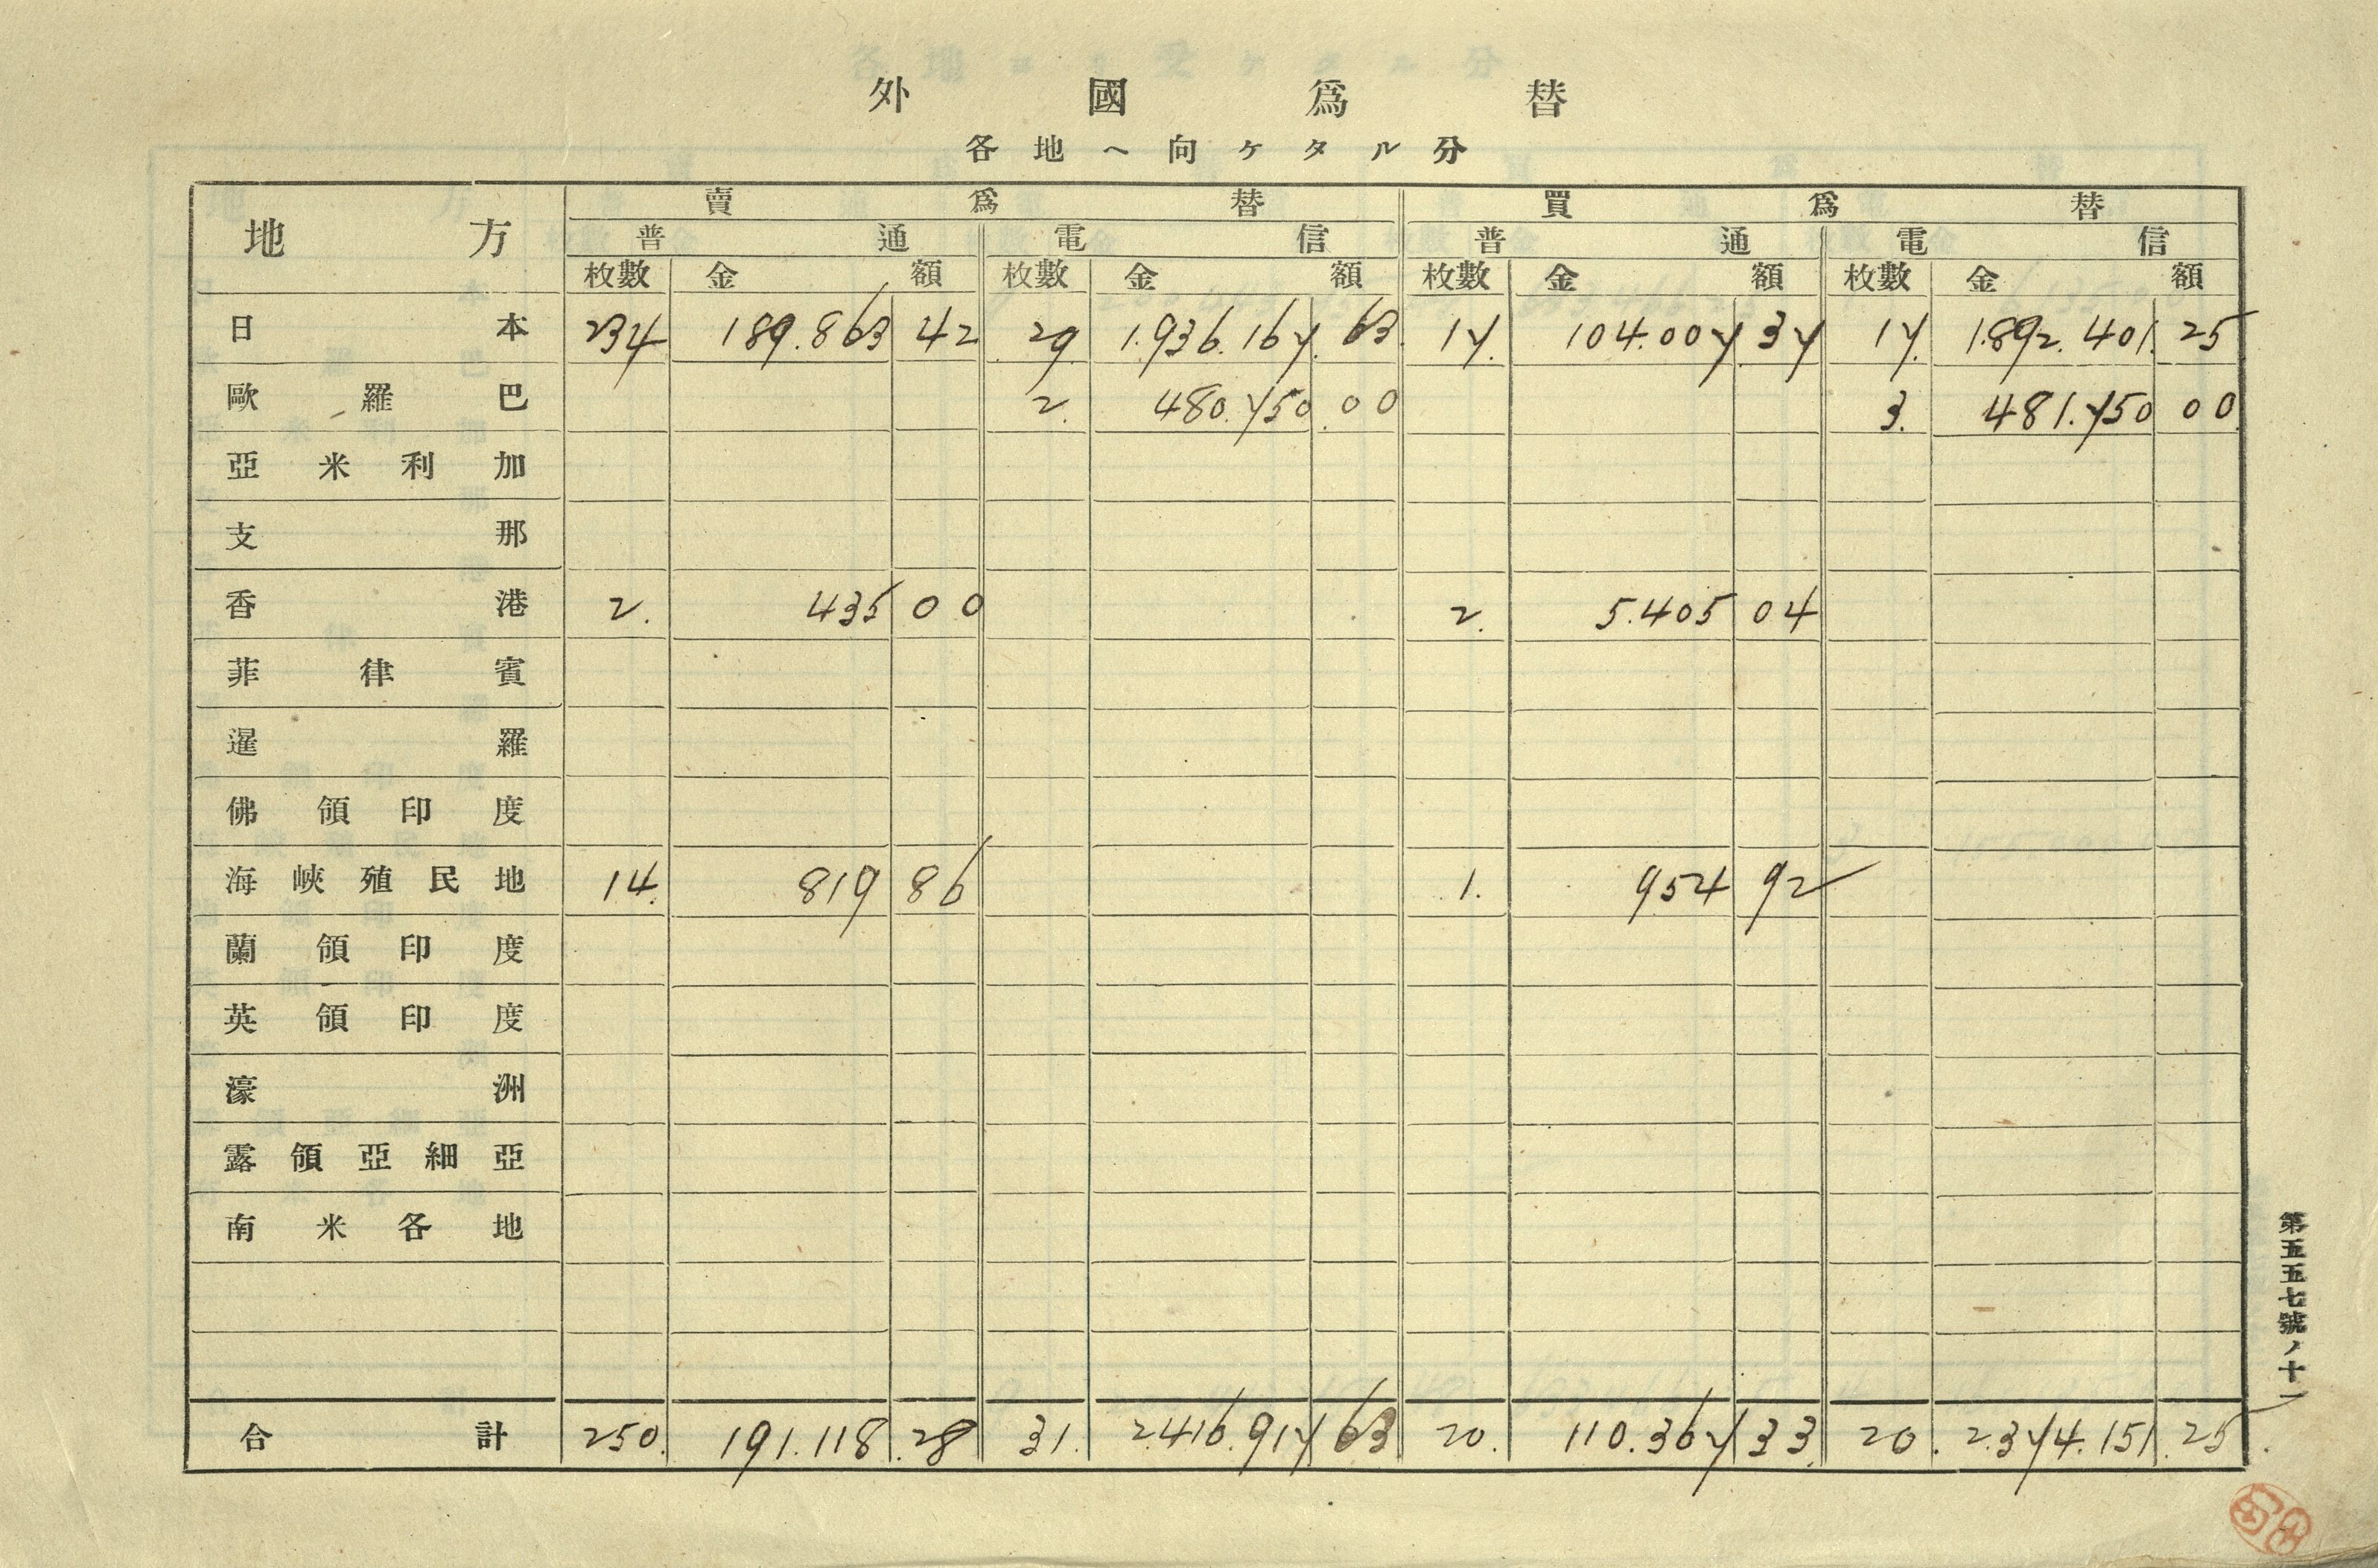 外國爲替
各地ヘ向ケタル分
地方 賣爲替 買爲替
普通 電信 普通 電信
枚數 金額 枚數 金額 枚數 金額 枚數 金額
日本 234 189.863 42 29 1.936.167 63 17. 104.007 37 17. 1.892.401 25
歐羅巴 2. 480.750 00 3. 481.750 00
亞米利加
支那
香港 2. 435 00 2. 5.405 04
菲律賓
暹羅
佛領印度
海峽殖民地 14. 819 86 1. 954 92
蘭領印度
英領印度
濠洲
露領亞細亞
南米各地
合計 250. 191.118 28 31. 2.416.917 63 20. 110.367 33 20. 2.374.151 25
第五五七號ノ十一